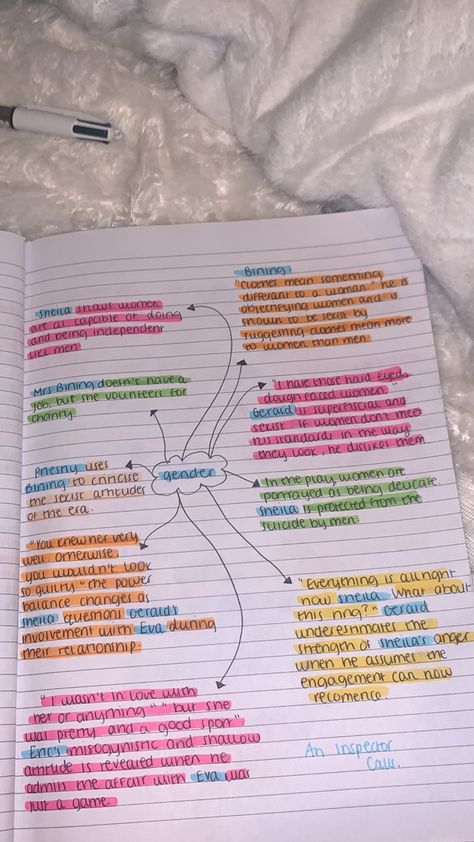 Sheila shows women
are as capible of doing
and being independent
like men
Birling:
"Clothes mean something
different to a woman" he is
objectifying women and is
shown to be sexist by
suggesting clothes mean more
to women than men
Mrs Birling doesn't have a
job, but she volunteers for
charity
"I hate those hard eyed,
dough faced women"
Gerald is superficial and
sexist. If women don't meet
his standards in the way
they look, he dislikes them
Priestly uses
Birling to criticise
the sexist attitudes
of the era.
gender
In the play, women are
portrayed as being delicate.
Sheila is protected from the
suicide by men
"You knew her very
well otherwise,
you wouldn't look
so guilty" the power
balance changes as
Sheila questions Gerald's
involvement with Eva during
their relationship.
"Everything is allright
now Sheila. What about
this ring?" Gerald
underestimates the
strength of Sheila's anger
when he assumes the
engagement can now
recomence.
"I wasn't in love with
her or anything" "but she
was pretty and a good sport"
Eric's misogynistic and shallow
attitude is revealed when he
admits the affair with Eva was
just a game.
An Inspector
Calls.